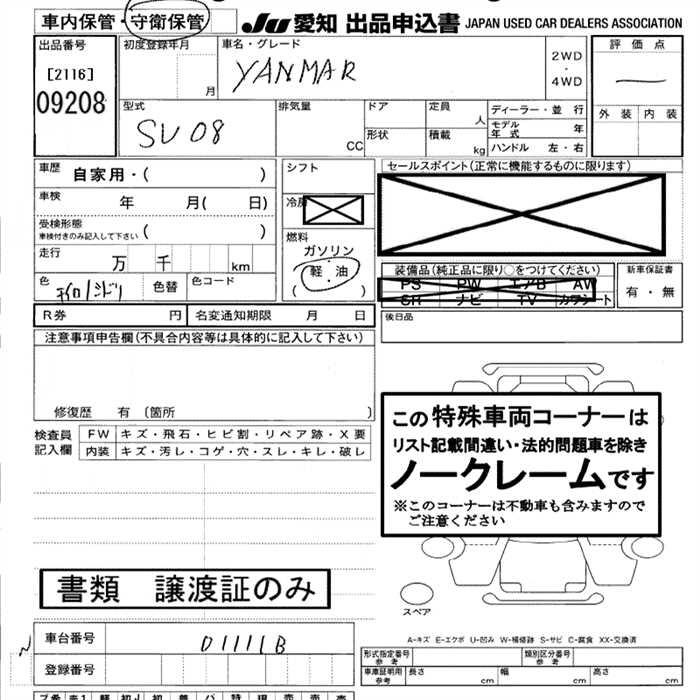 車内保管・守衛保管
JU 愛知 出品申込書 JAPAN USED CAR DEALERS ASSOCIATION
出品番号
[2116]
09208
初度登録年月
月
車名・グレード
YANMAR
2WD
・
4WD
評価点
外装 内装
型式
SV08
排気量
CC
ドア
形状
定員
人
積載
kg
ディーラー・並行
モデル年式 年
ハンドル 左・右
車歴
自家用・( )
車検
年 月( 日)
受検形態
車検付きのみ記入して下さい ( )
走行
万 千 km
色
色替
色コード
シフト
燃料
ガソリン
軽・油
( ・ )
セールスポイント(正常に機能するものに限ります)
装備品(純正品に限り○をつけてください)
PS PW エアB AW
SR ナビ TV カワシート
新車保証書
有・無
R券 円
名変通知期限 月 日
後日品
注意事項申告欄(不具合内容等は具体的に記入して下さい)
修復歴 有 〔箇所 〕
検査員記入欄
FW キズ・飛石・ヒビ割・リペア跡・X要
内装 キズ・汚レ・コゲ・穴・スレ・キレ・破レ
この特殊車両コーナーは
リスト記載間違い・法的問題車を除き
ノークレームです
※このコーナーは不動車も含みますので
ご注意ください
スペア
書類 譲渡証のみ
A-キズ E-エクボ U-凹み W-補修跡 S-サビ C-腐食 XX-交換済
車台番号
01111B
登録番号
形式指定番号
参考
類別区分番号
参考
車庫証明用
参考
長さ cm
幅 cm
高さ cm